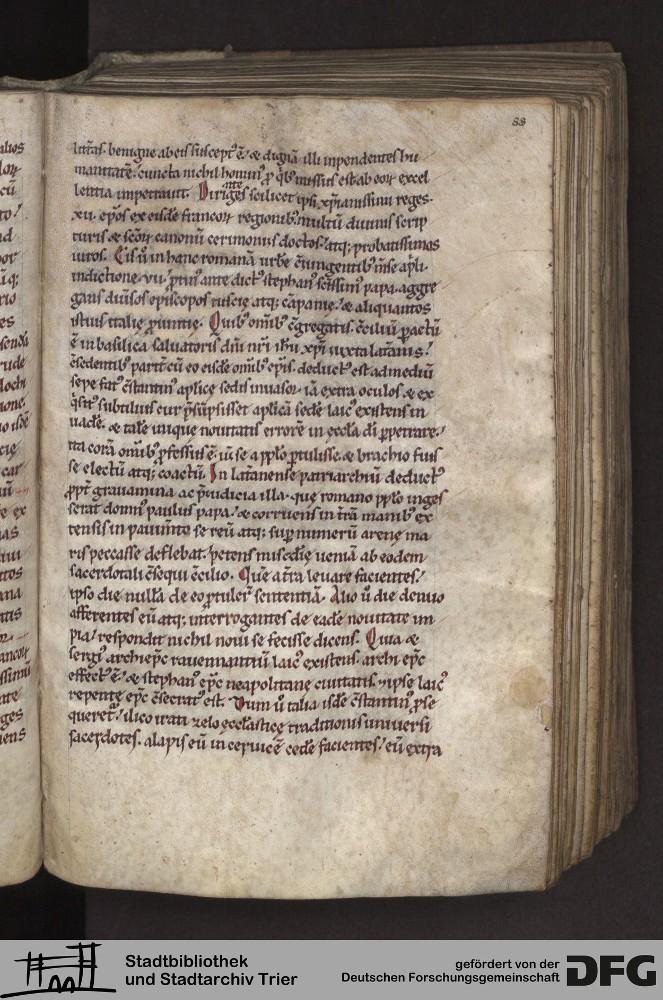 88
litatis. benigne ab eis suscept᷒ ē. & dignā illi inpendentes hu
manitatē. cuncta nichil homin᷒ ꝓ qͥb᷒ missus est ab eoꝝ excel
lentia impetrauit. Dirigentes scilicet ipsi xp̄ianissimi reges.
xii. ep̄os ex eisdē francoꝝ regionib᷒ multū diuinis scrip
turis & scōꝝ canonū cerimoniis doctos. atq; probatissimos
uiros. Eis ū in hanc romanā urbē ꝯiungentib᷒ mēse apͥli.
indictione. vii. prius ante dict᷒ stephan᷒ scīssim᷒ papa. aggre
gans diūsos episcopos tuscie atq; cāpanie. & aliquantos
istius italie ꝓuintie. Quib᷒ omib᷒ ꝯgregatis. ꝯciliū ꝑactū
ē in basilica saluatoris dn̄i nr̄i ih̄u xp̄i iuxta latānis.
ꝯsedentib᷒ paritͨ cū eo eisdē omib᷒ ep̄is. deduct᷒ est ad mediū
sepe fat᷒ ꝯstantin᷒ aplicę sedis inuasor. iā extra oculos & ex
qͥsit᷒ subtilius cur p̄sūpsisset aplicā sedē laic᷒ existens in
uadē. & talē inique nouitatis errorē in ęccla dī ꝑpetrare.
ita corā omib᷒ ꝓfessus ē. uī se a pplo ꝑtulisse. & brachio fuis
se electū atq; coactū. In latānense patriarchiū deduct᷒
ꝓpt̄ grauamina ac p̄iudicia illa. que romano pplo inges
serat domn᷒ paulus papa. & corruens in t̄rā manib᷒ ex
tensis in pauim̄to se reū atq; suꝑ numerū arenę ma
ris peccasse deflebat. petens misc̄die ueniā ab eodem
sacerdotali ꝯsequi ꝯcilio. Quē a t̄ra leuare facientes.
ipso die nullā de eo ꝓtuler̄ sententiā. Alio ū die denuo
afferentes eū atq; interrogantes de eadē nouitate im
pia. respondit nichil noui se fecisse dicens. Quia &
sergi᷒ archiepc̄ rauennantiū laic᷒ existens. archi epc̄
effect᷒ ē. & stephan᷒ epc̄ neapolitanę ciuitatis. ipse laic᷒
repente epc̄ ꝯsecrat᷒ est. Dum ū talia isdē ꝯstantin᷒ ꝓse
queret᷑. ilico irati zelo ęcclāsticę traditionis uniuersi
sacerdotes. alapis eū in ceruicē cedē facientes. eū extra
Stadtbibliothek
und Stadtarchiv Trier
gefördert von der
Deutschen Forschungsgemeinschaft
DFG